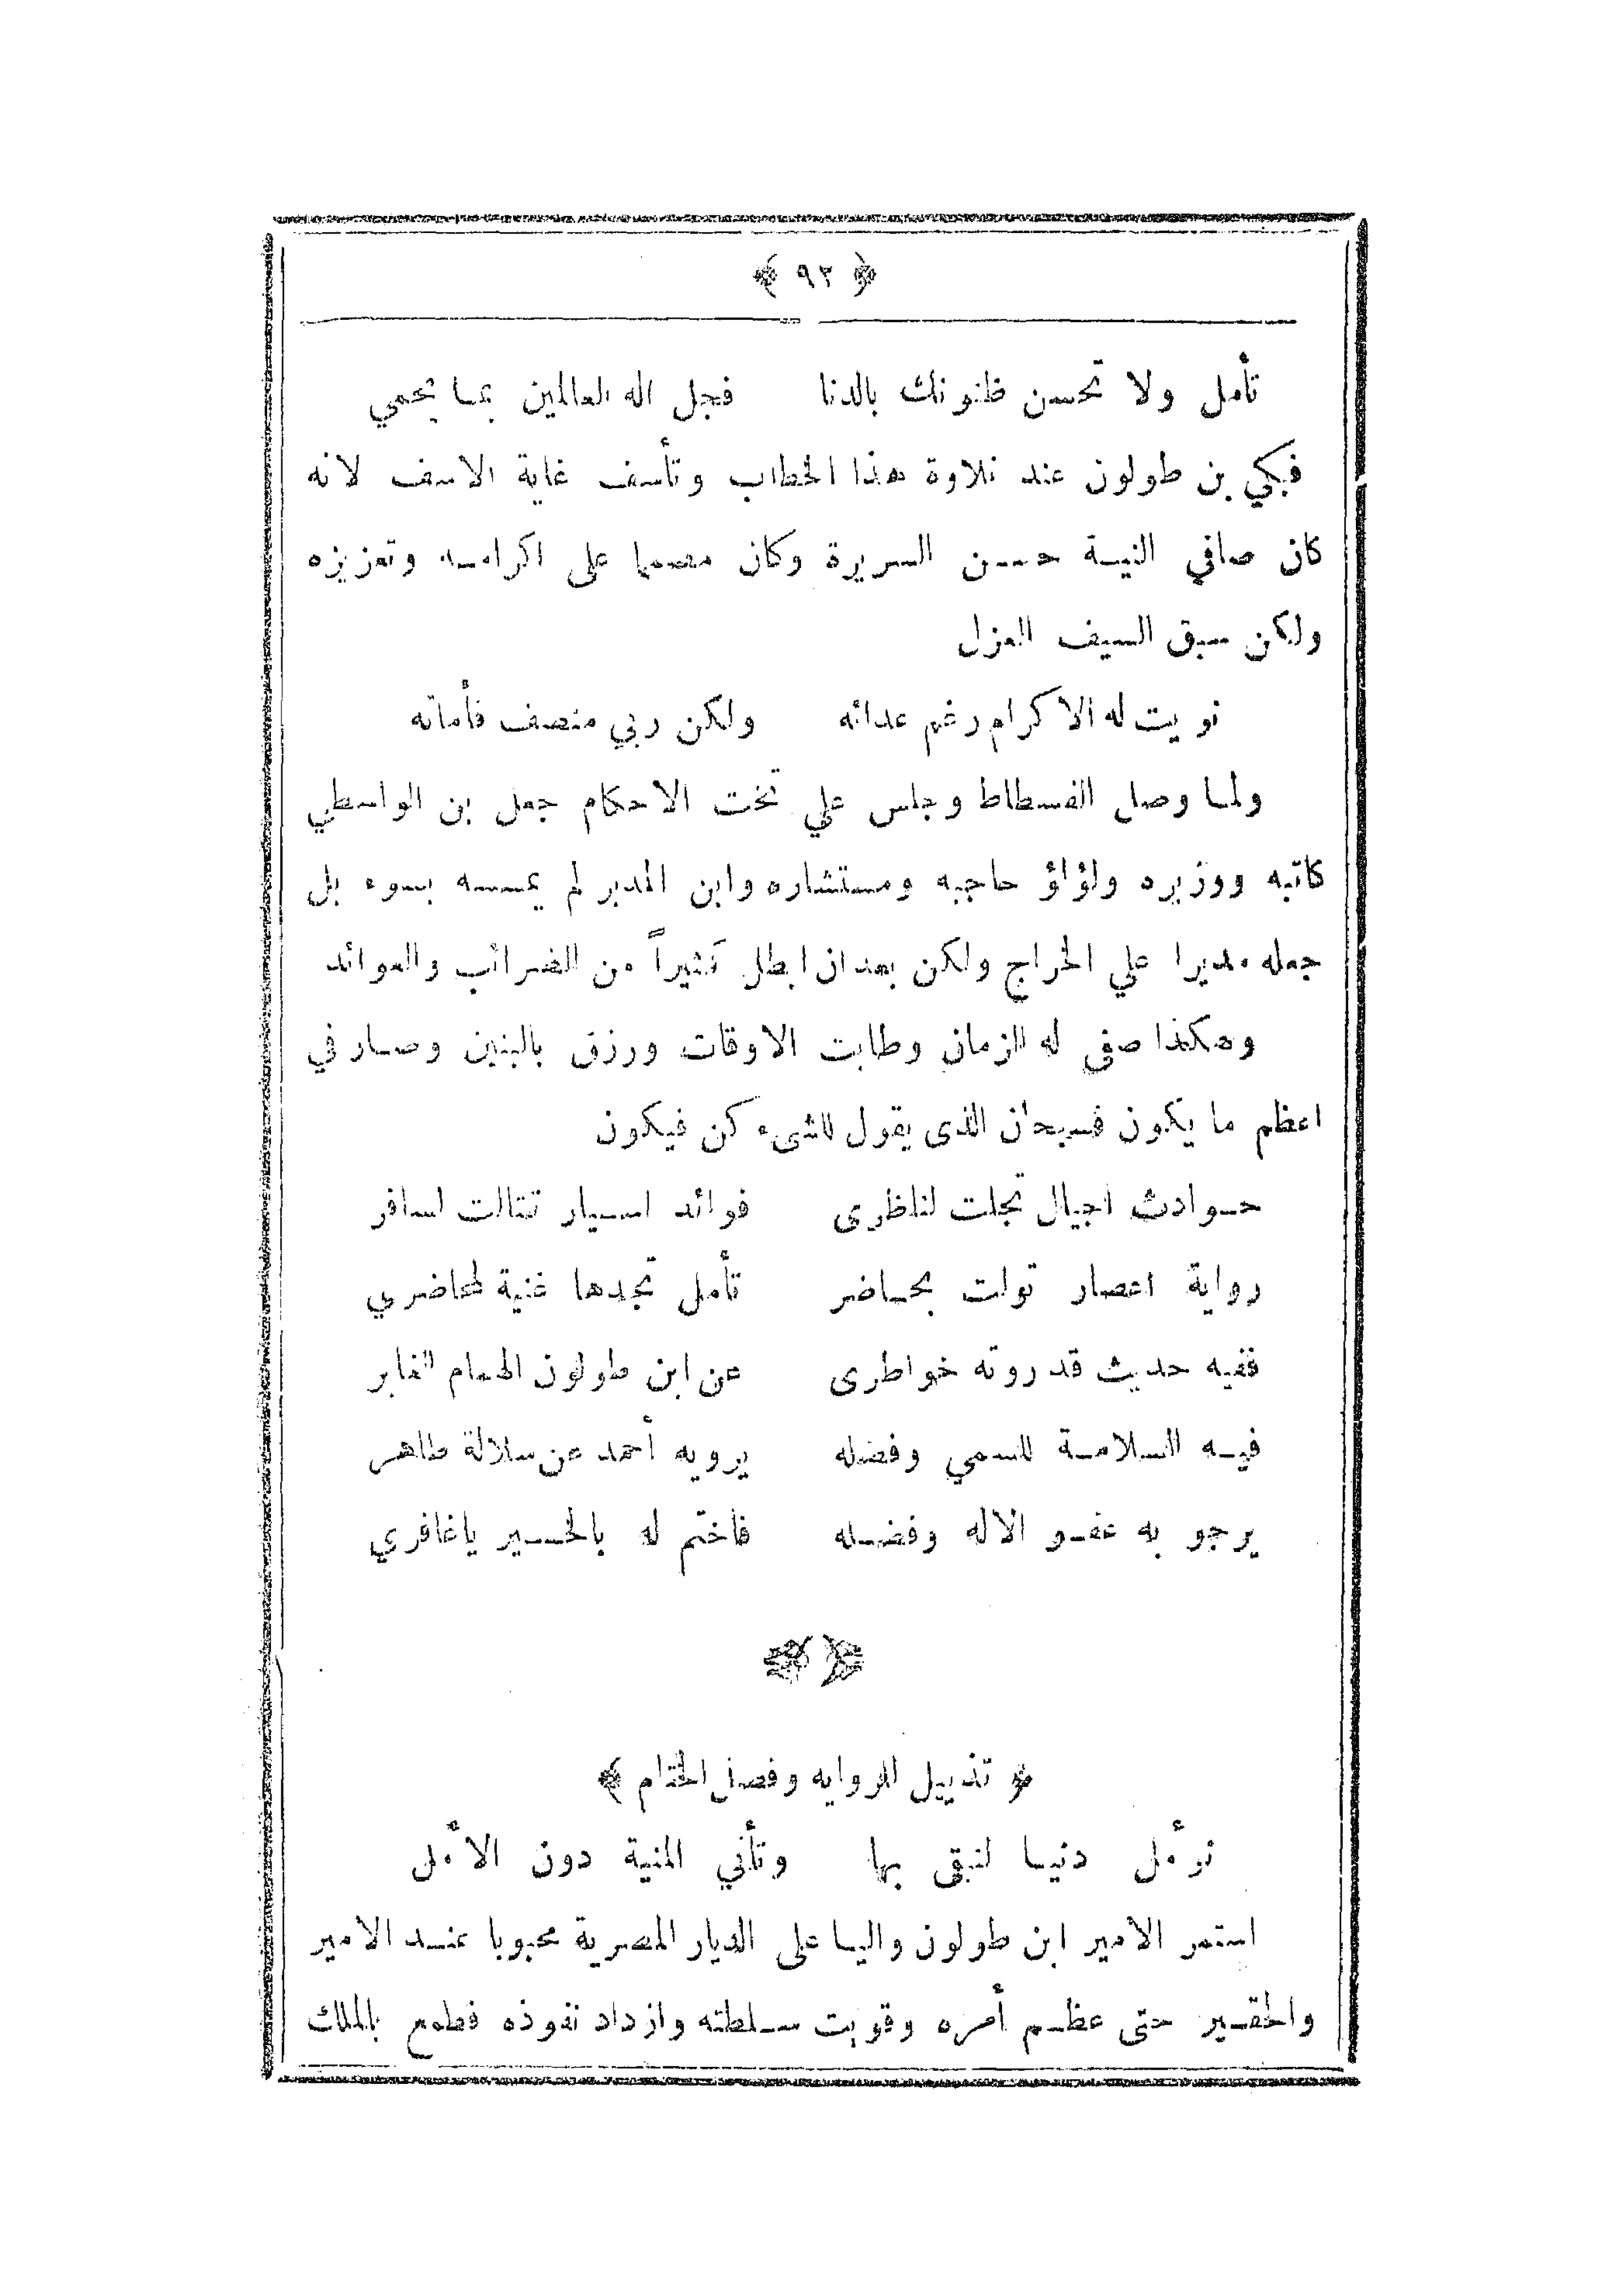 ﴿ ٩٢ ﴾
تأمل ولا تحسن ظنونك بالدنا فجل اله العالمين بما يحمي
فبكي بن طولون عند تلاوة هذا الخطاب وتأسف غاية الاسف لانه
كان صافي النية حسن السريرة وكان مصمما على اكرامه وتعزيزه
ولكن سبق السيف العزل
نويت له الاكرام رغم عدائه ولكن ربي منصف فأماته
ولما وصل الفسطاط وجلس علي تخت الاحكام جعل بن الواسطي
كاتبه ووزيره ولؤلؤ حاجبه ومستشاره وابن المدبر لم يمسسه بسوء بل
جعله مديرا علي الخراج ولكن بعدان ابطل كثيراً من الضرائب والعوائد
وهكذا صفى له الزمان وطابت الاوقات ورزق بالبنين وصار في
اعظم ما يكون فسبحان الذى يقول للشىء كن فيكون
حوادث اجيال تجلت لناظرى فوائد اسيار تتالت لسافر
رواية اعصار تولت بحاضر تأمل تجدها غنية لمحاضري
ففيه حديث قد روته خواطرى عن ابن طولون الهمام الغابر
فيه السلامة للسمي وفضله يرويه أحمد عن سلالة طاهر
يرجو به عفو الاله وفضله فاختم له بالخير ياغافري
﴿ تذييل للروايه وفصل الختام ﴾
نؤمل دنيا لنبقى بها وتأتي المنية دون الأمل
استمر الامير ابن طولون واليا على الديار المصرية محبوبا عند الامير
والحقير حتى عظم أمره وقويت سلطته وازداد نفوذه فطمع بالملك